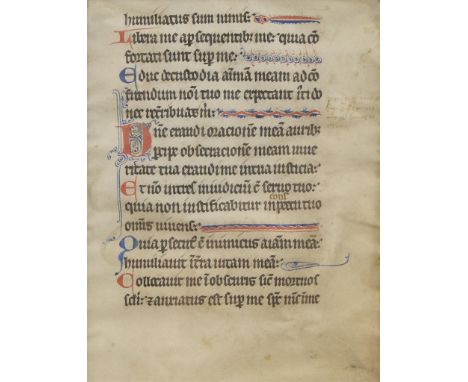 humiliatus sum nimis:
Libera me a p̲sequentib; me: quia cō
fortati sunt sup̲ me:
Educ de custodia aīam meam ad cō
fitendum noī tuo me expectant iūsti do
nec retribuas m̄:
Dn̄e exaudi oracionē meā aurib;
p̲cipe obsecracionē meam in ueri
tate tua exaudi me in tua iusticia:
Et nō intres in iudiciū cū seruo tuo:
quia non iustificabitur in cōsp̄ctu tuo
omnis uiuens:
Quia p̲secut̄ ē inimicus aīam meā:
humiliauit in t̄ra uitam meā:
Collocauit me in obscuris sic̄ mortuos
scl̄i: ⁊ anxiatus est sup̲ me sp̄c